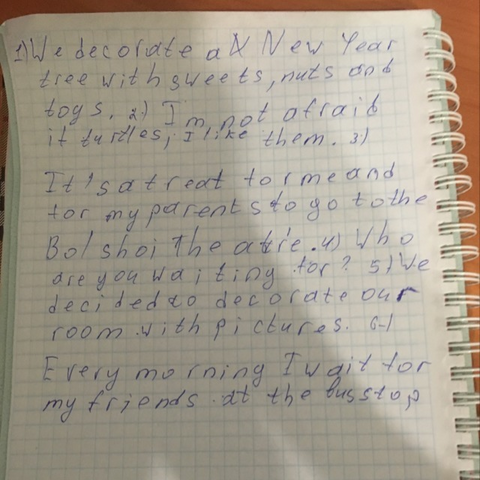 1) We decorate a X New Year
tree with sweets, nuts and
toys. 2) I'm not afraid
it turtles, I like them. 3)
It's a treat for me and
for my parents to go to the
Bolshoi Theatre. 4) Who
are you waiting for? 5) We
decided to decorate our
room with pictures. 6)
Every morning I wait for
my friends at the bus stop